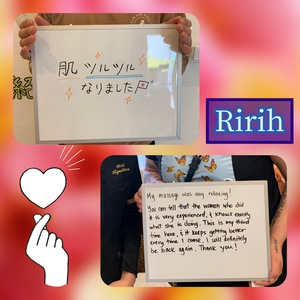 肌 ツルツル
なりました
Ririh
My massage was very relaxing!
You can tell that the women who did
it is very experienced, & knows exactly
what she is doing. This is my third
time here, & it keeps getting better
every time I come. I will definitely
be back again. Thank you!